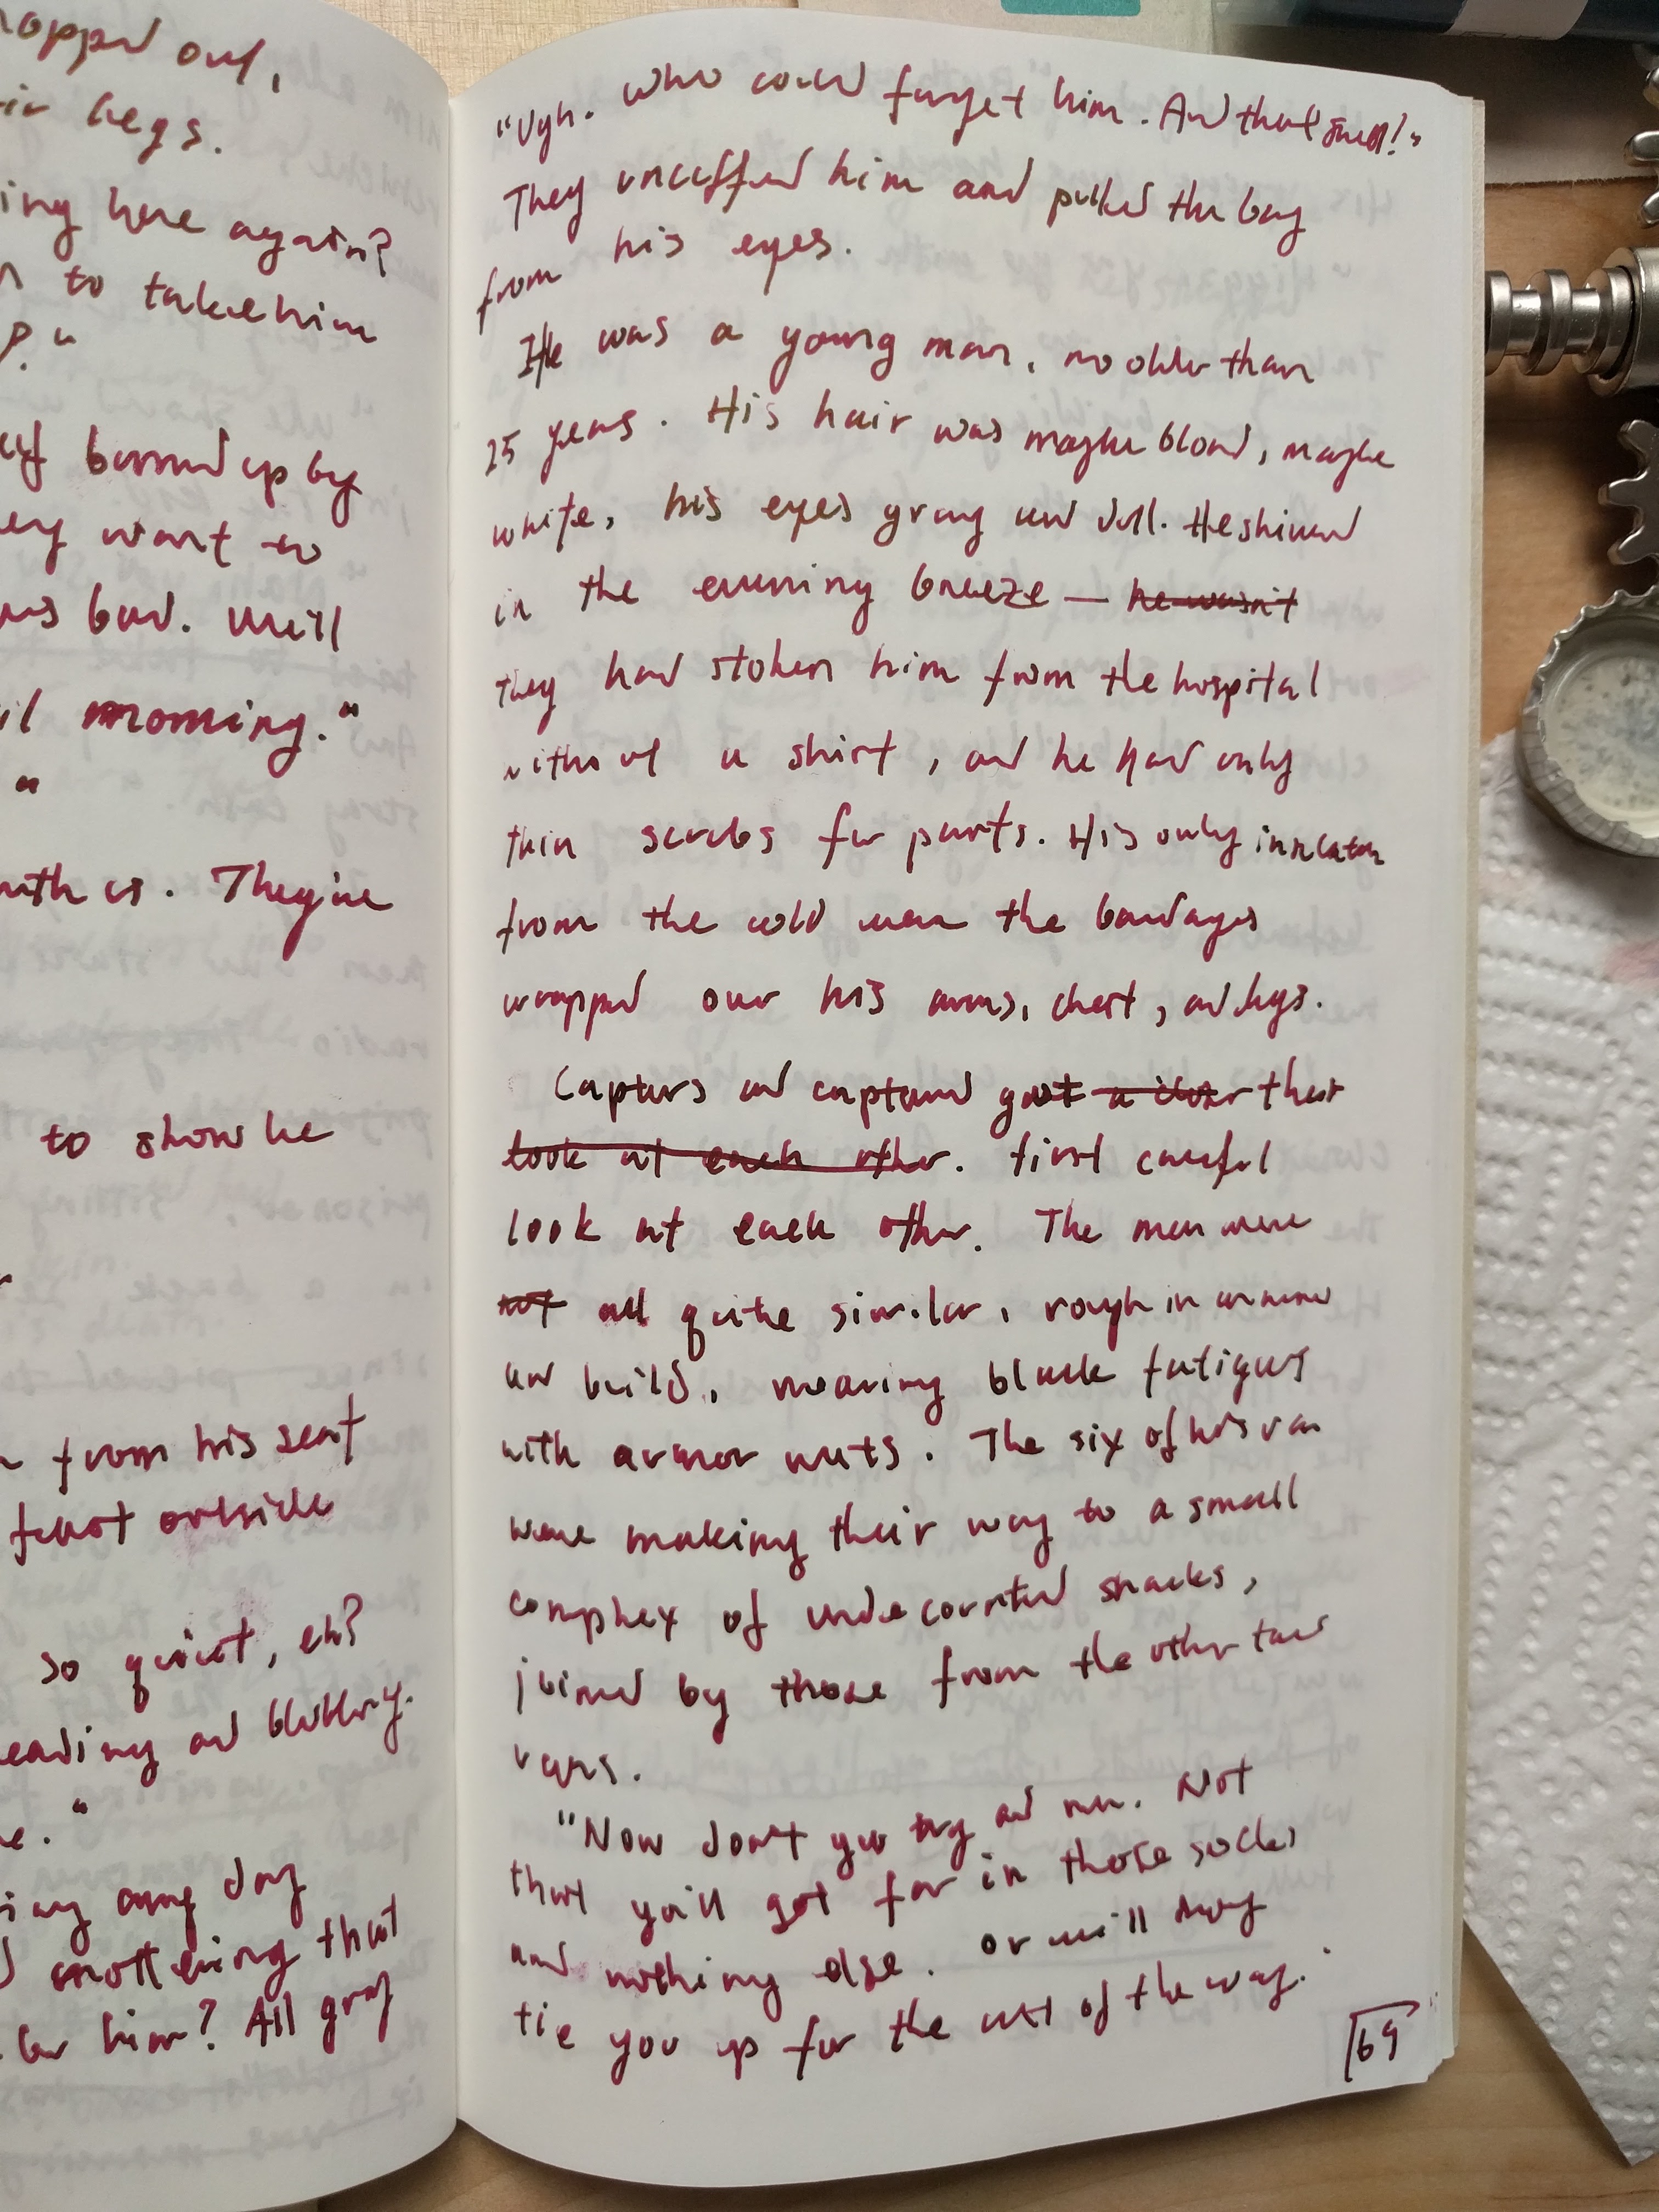 opped out,
legs.
ing here again?
to take him
up by
ey want to
bad. We'll
il morning."
with us. They're
to show he
from his seat
outside
so quiet, eh?
eading and blubbery.
e."
any day
smothering that
him? All gray
"Ugh. Who could forget him. And that smell!"
They uncuffed him and pulled the bag
from his eyes.
He was a young man, no older than
25 years. His hair was maybe blond, maybe
white, his eyes gray and dull. He shivered
in the evening breeze — he wasn't
they had stolen him from the hospital
without a shirt, and he had only
thin scrubs for pants. His only insulation
from the cold were the bandages
wrapped over his arms, chest, and legs.
Captors and captured got a their
look at each other. first careful
look at each other. The men were
not all quite similar, rough in
and build, wearing black fatigues
with armor vests. The six of his van
were making their way to a small
complex of undecorated shacks,
joined by those from the other two
vans.
"Now don't you try and run. Not
that you'll get far in those socks
and nothing else. Or we'll
tie you up for the rest of the way."
169